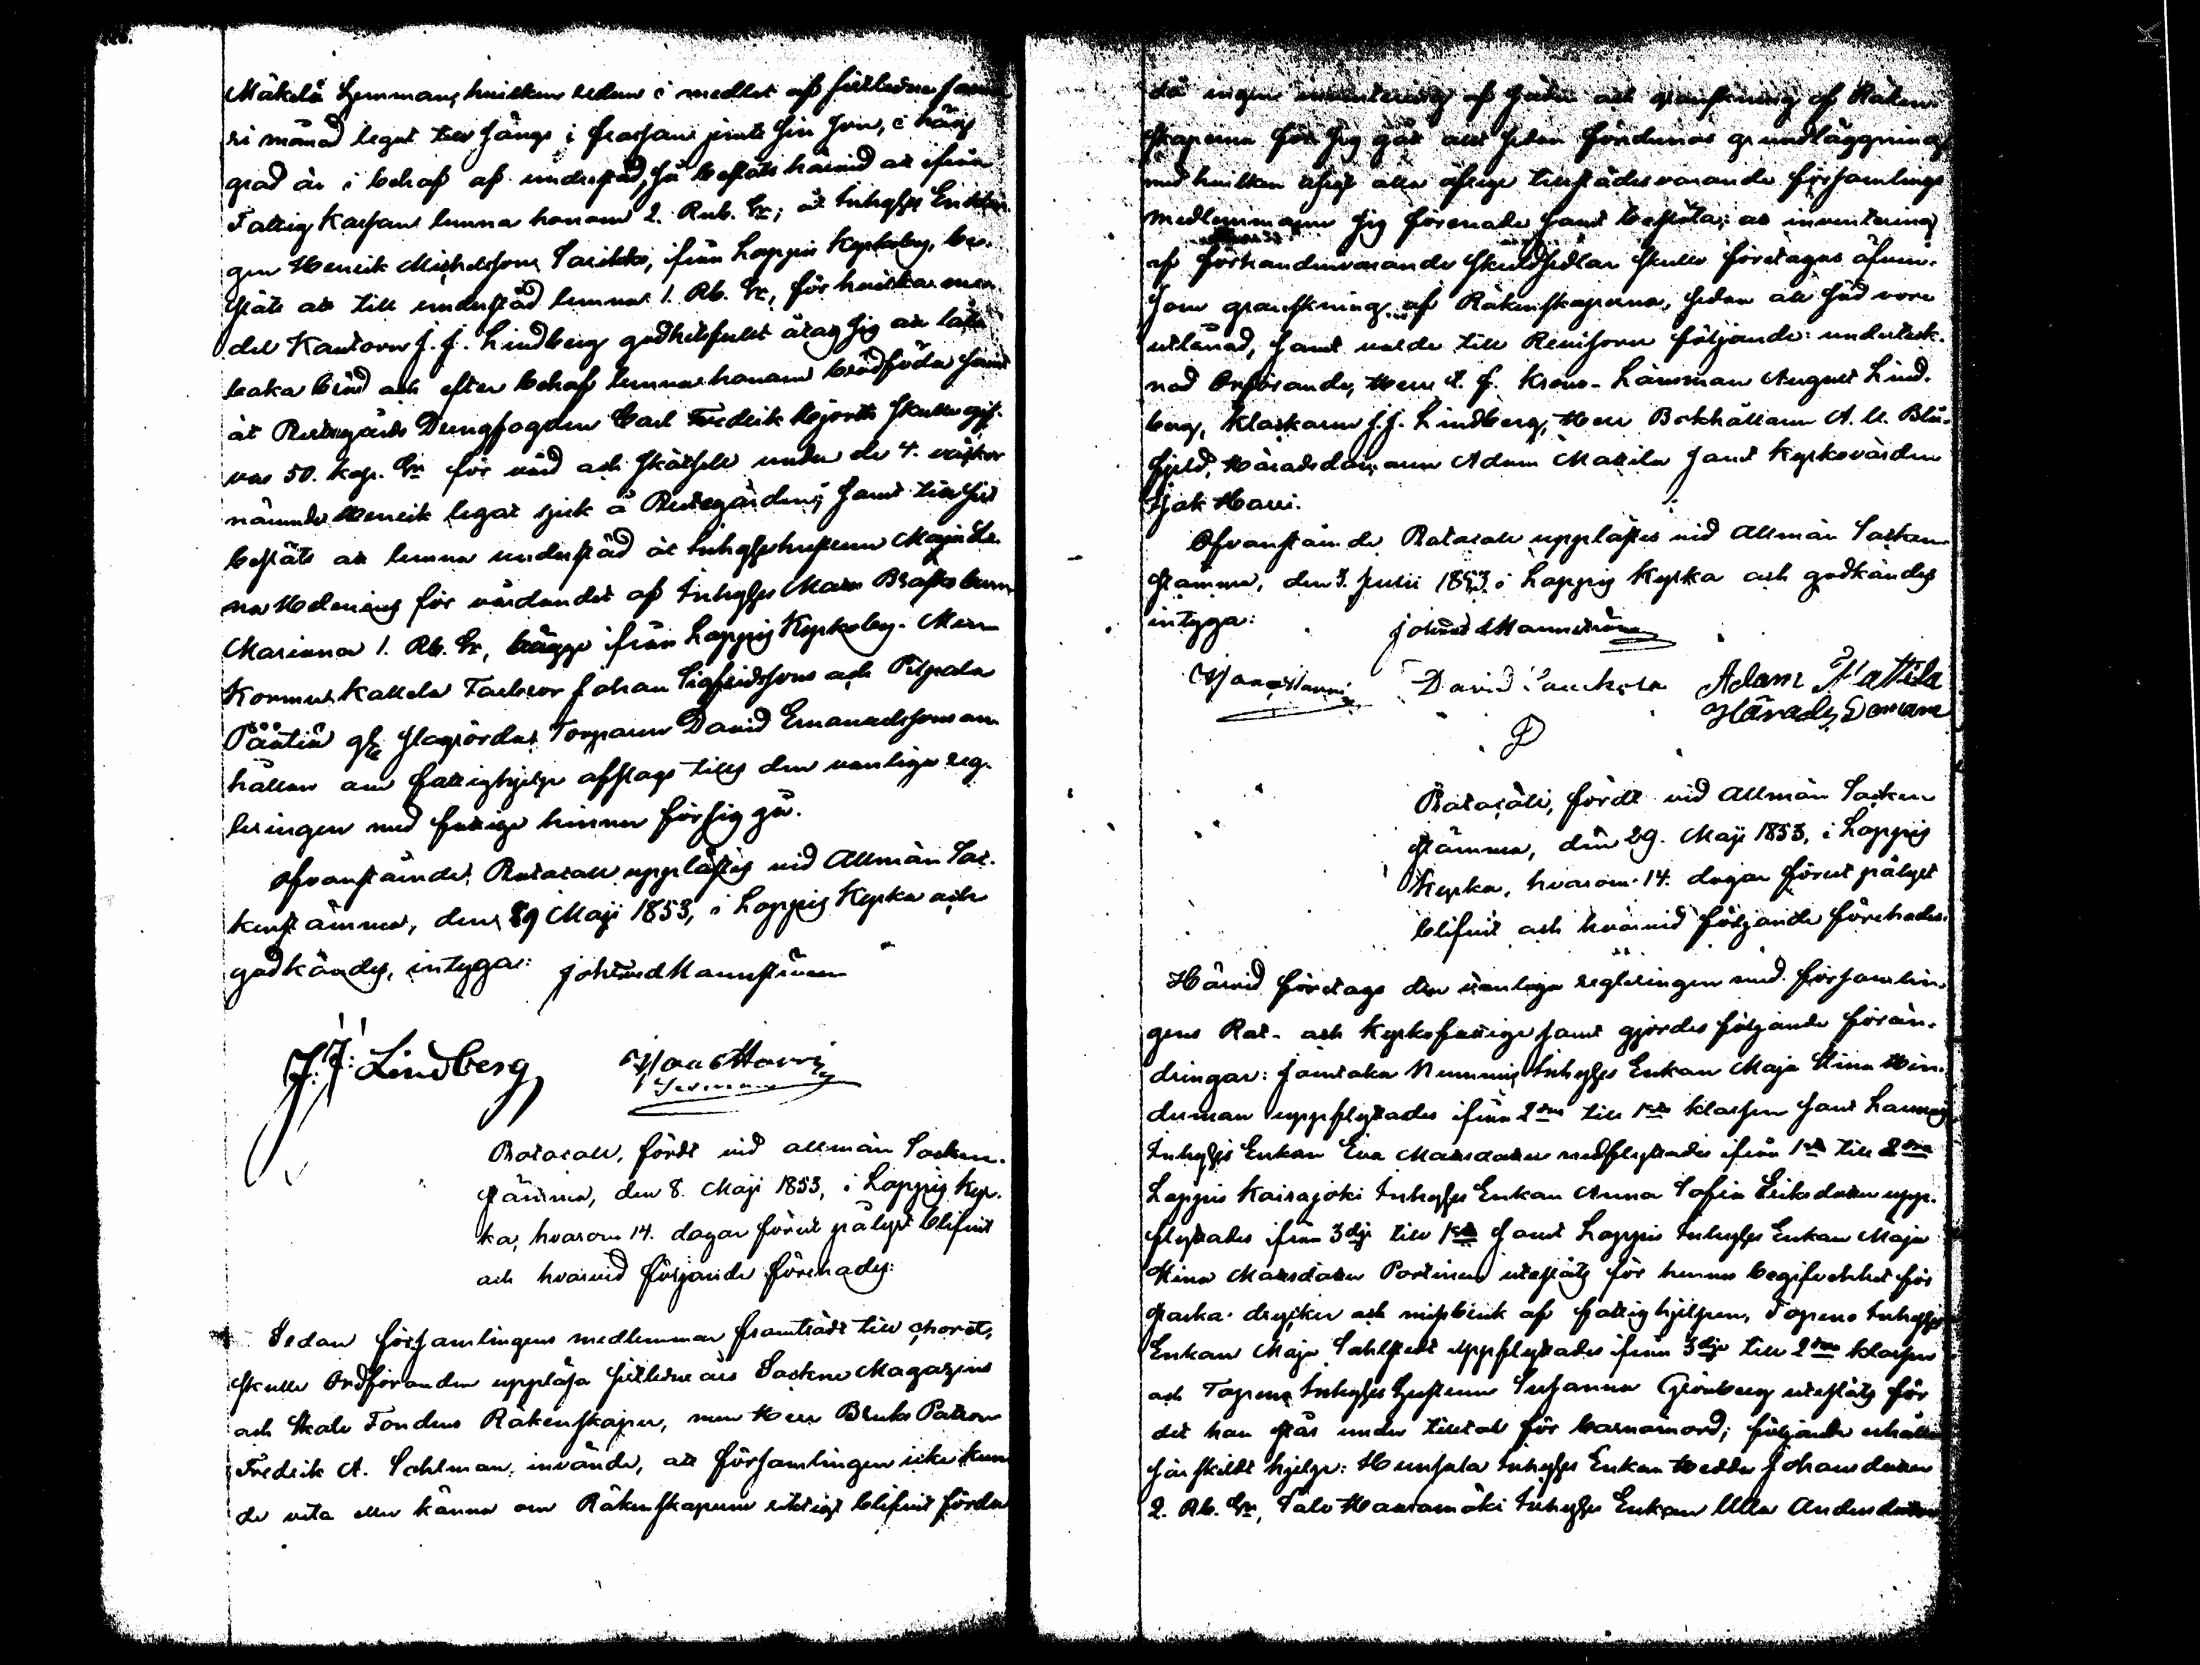 Mäkelä hemman, hvilken redan i medlet af sistledne Janua
ri månad legat till sängs i frossan jemte sin son, i hög
grad är i behof af understöd, så beslöts härvid att ifrån
Fattig Kassan lemna honom 2. Rub. Sr; åt Inhyses Enklin
gen Henrik Michelsson Sarikko, ifrån Loppis Kyrkoby, be-
slöts att till understöd lemna 1. Rb. Sr, för hvilka me
del Kantorn J. J. Lindberg godhetsfullt åtog sig att låta
baka bröd och efter behof lemna honom brödföda samt
åt Prestgårds Drengfogden Carl Fredrik Hjorth skulle gif-
vas 50. kop. Sr för vård och skötsel under de 4. veckor
nämnde Henrik legat sjuk å Prestgården; samt till sist
beslöts att lemna understöd åt Inhyseshustrun Maja Le-
na Helenius för vårdandet af Inhyses Mans Brofelts barn
Marianna 1. Rb. Sr, bägge ifrån Loppis Kyrkoby. Men
Kormu Kallela Torpare Johan Sigfridssons och Pilpala
Pääliä Torparen David Emanuelssons an-
hållan om fattighjelp afslogs tills den vanliga reg-
leringen med fattige hinner försiggå.
Ofvanstående Protocoll upplästes vid Allmän Soc-
kenstämma, den 29 Maji 1853, i Loppis Kyrka och
godkändes, intyga: Joh: Fred Mannström
J: J: Lindberg Isaac Harri
Protocoll, fördt vid allmän Socken-
stämma, den 8. Maji 1853, i Loppis Kyr-
ka, hvarom 14. dagar förut pålyst blifvit
och hvarvid följande förehades:
Sedan församlingens medlemmar framträdt till choret,
skulle Ordföranden uppläsa sistledne års Sockne Magazins
och Skole Fondens Räkenskaper, men Herr Bruks Patron
Fredrik A. Sohlman invände, att församlingen icke kun
de veta eller känna om Räkenskaperne riktigt blifvit förda
då ingen inventering af Säden och granskning af Räken-
skaperna för sig gått allt sedan fondernas grundläggning
med hvilken åsigt alla öfrige tillstädesvarande församlings
medlemmarne sig förenade samt beslöto, att inventering
af förhandenvarande skuldsedlar skulle företagas äfven-
som granskning af Räkenskaperna, sedan all säd vore
utlånad, samt valde till Revisorer följande: underteck-
nad Ordförande, Herr t. f. Krono-Länsman August Lind-
berg, Klockaren J. J. Lindberg, Herr Bokhållaren A. U. Blå-
fjeld, Häradsdomaren Adam Mattila samt Kyrkovärden
Isak Harri.
Ofvanstående Protocoll upplästes vid Allmän Socken
stämma, den 3. Julii 1853 i Loppis Kyrka och godkändes
intyga: Joh Fred Mannström
Isaac Harri David Adam Mattila
Härads Domare
Protocoll, fördt vid Allmän Socken
stämma, den 29. Maji 1853, i Loppis
Kyrka, hvarom 14. dagar förut pålyst
blifvit och hvarvid följande förehades.
Härvid företogs den vanliga regleringen med församlin-
gens Rot- och Kyrkofattige samt gjordes följande förän-
dringar: Inhyses Enkan Maja Stina Hin-
derman uppflyttades ifrån 2dra till 1sta klassen samt
Inhyses Enkan Eva Matsdotter nedflyttades ifrån 1sta till 2dra
Loppis Kairajoki Inhyses Enkan Anna Sofia Eriksdotter upp-
flyttades ifrån 3dje till 1sta samt Loppis Inhyses Enkan Maja
Stina Matsdotter Portinen uteslöts för hennes begifvenhet för
starka drycker och missbruk af fattighjelpen, Topeno Inhyses
Enkan Maja Sahlstedt uppflyttades ifrån 3dje till 2dra klassen
och Topeno Inhyses hustrun Susanna Grönberg uteslöts för
det hon står under tilltal för barnamord; följande erhåller
särskildt hjelp: Hunsala Inhyses Enkan Hedda Johansdotter
2. Rb. Sr, Salo Inhyses Enkan Ulla Andersdotter